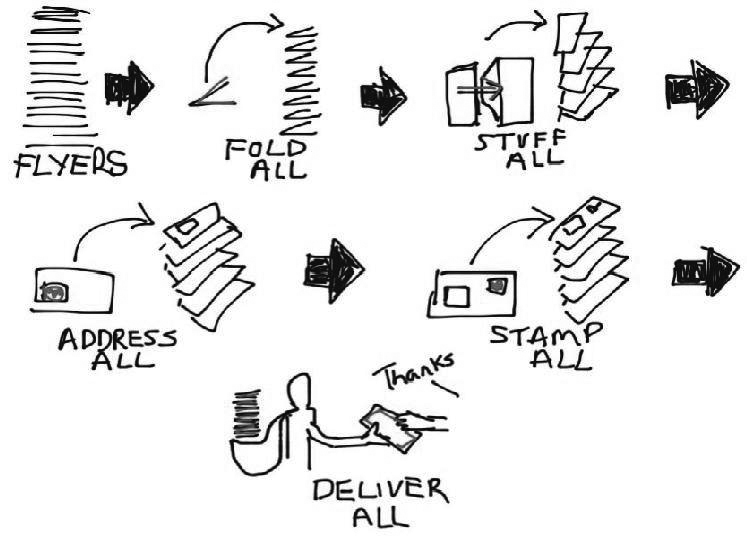 FLYERS
FOLD
ALL
STUFF
ALL
ADDRESS
ALL
STAMP
ALL
Thanks
DELIVER
ALL